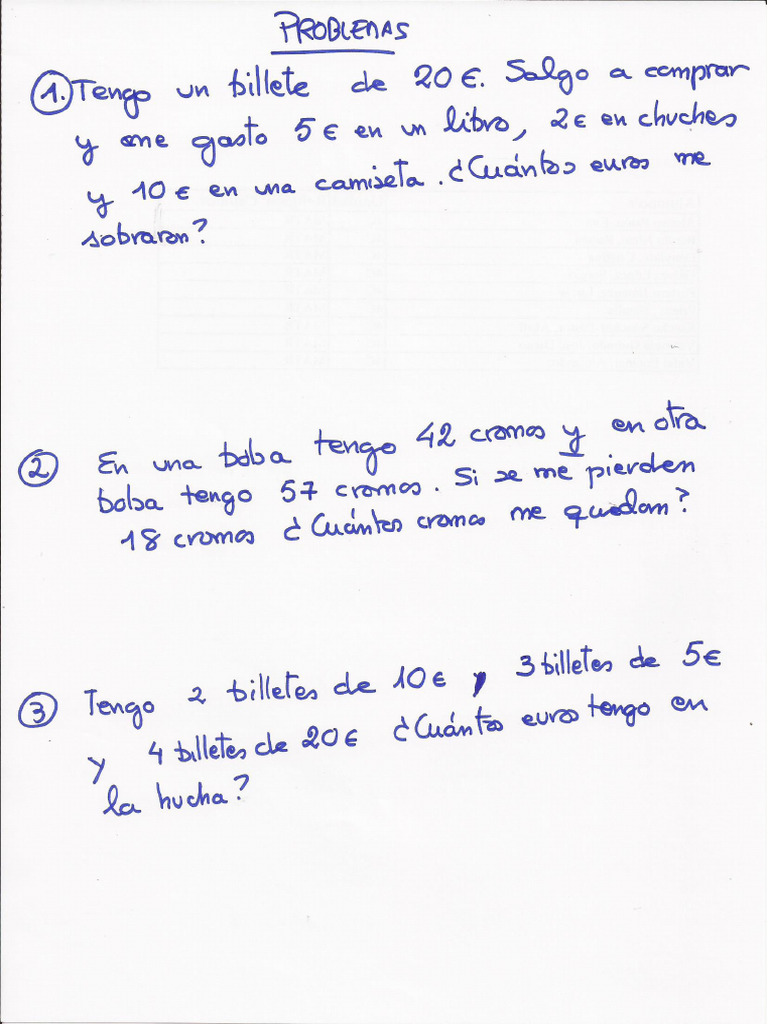 PROBLEMAS
1. Tengo un billete de 20 €. Salgo a comprar
y me gasto 5 € en un libro, 2 € en chuches
y 10 € en una camiseta. ¿Cuántos euros me
sobraron?
2 En una bolsa tengo 42 cromos y en otra
bolsa tengo 57 cromos. Si se me pierden
18 cromos ¿Cuántos cromos me quedan?
3 Tengo 2 billetes de 10 € , 3 billetes de 5 €
y 4 billetes de 20 € ¿Cuántos euros tengo en
la hucha?